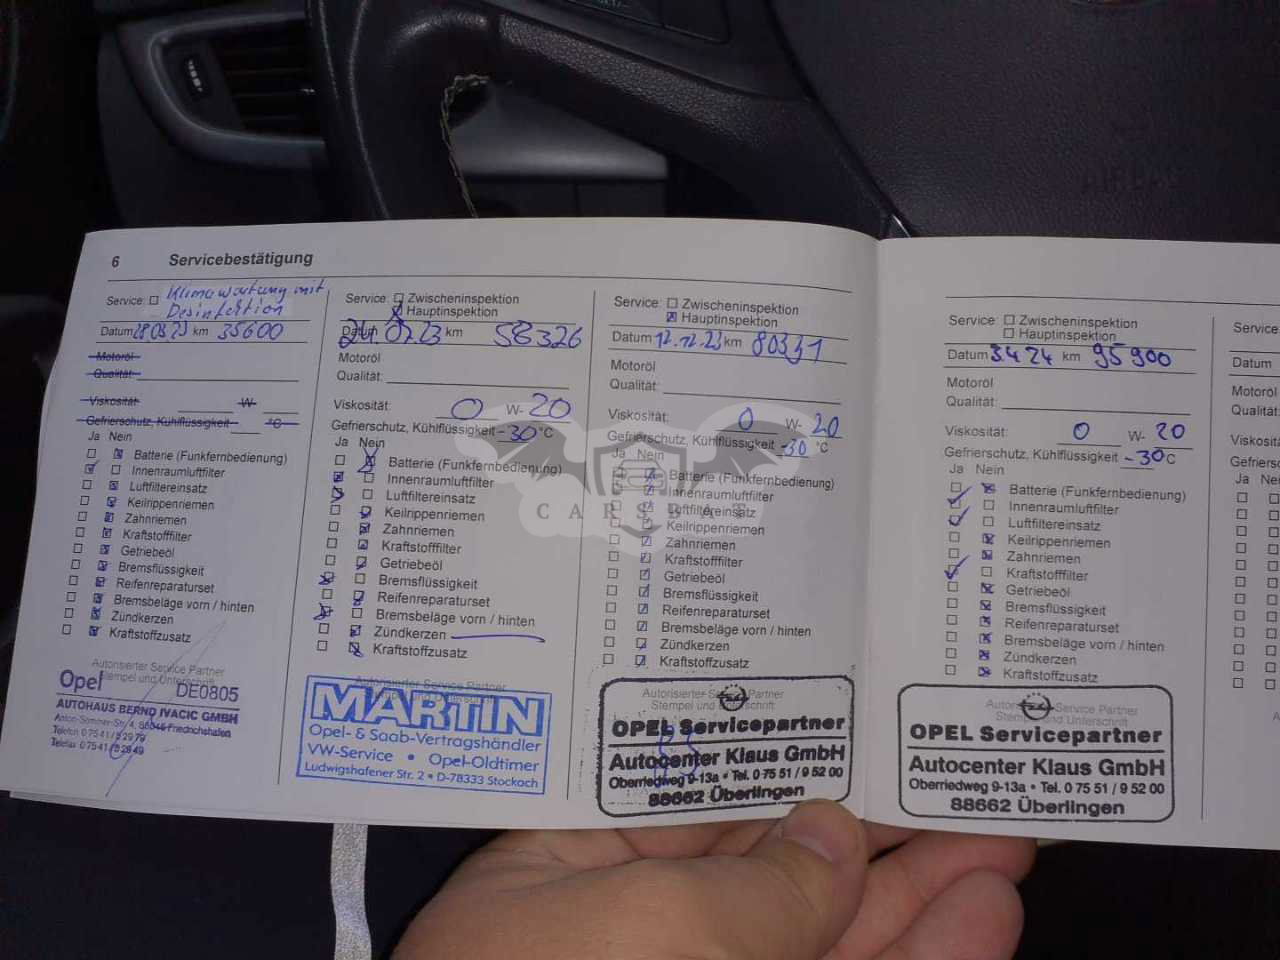 6 Servicebestätigung
Service: Klimawartung mit
Desinfektion
Datum 28.03.23 km 35600
Motoröl
Qualität:
Viskosität: W-
Gefrierschutz, Kühlflüssigkeit °C
Ja Nein
Batterie (Funkfernbedienung)
Innenraumluftfilter
Luftfiltereinsatz
Keilrippenriemen
Zahnriemen
Kraftstofffilter
Getriebeöl
Bremsflüssigkeit
Reifenreparaturset
Bremsbeläge vorn / hinten
Zündkerzen
Kraftstoffzusatz
Autorisierter Service Partner
Stempel und Unterschrift
Opel DE0805
AUTOHAUS BERND IVACIC GMBH
Anton-Sommer-Str. 4, 88046 Friedrichshafen
Telefon 07541/52979
Telefax 07541/52849
Service: Zwischeninspektion
Hauptinspektion
Datum km 58326
Motoröl
Qualität:
Viskosität: 0 W- 20
Gefrierschutz, Kühlflüssigkeit -30 °C
Ja Nein
Batterie (Funkfernbedienung)
Innenraumluftfilter
Luftfiltereinsatz
Keilrippenriemen
Zahnriemen
Kraftstofffilter
Getriebeöl
Bremsflüssigkeit
Reifenreparaturset
Bremsbeläge vorn / hinten
Zündkerzen
Kraftstoffzusatz
Autorisierter Service Partner
MARTIN
Opel- & Saab-Vertragshändler
VW-Service • Opel-Oldtimer
Ludwigshafener Str. 2 • D-78333 Stockach
Service: Zwischeninspektion
Hauptinspektion
Datum 12.12.23 km 80331
Motoröl
Qualität:
Viskosität: 0 W- 20
Gefrierschutz, Kühlflüssigkeit -30 °C
Ja Nein
Batterie (Funkfernbedienung)
Innenraumluftfilter
Luftfiltereinsatz
Keilrippenriemen
Zahnriemen
Kraftstofffilter
Getriebeöl
Bremsflüssigkeit
Reifenreparaturset
Bremsbeläge vorn / hinten
Zündkerzen
Kraftstoffzusatz
Autorisierter Service Partner
Stempel und Unterschrift
OPEL Servicepartner
Autocenter Klaus GmbH
Oberriedweg 9-13a • Tel. 0 75 51 / 9 52 00
88662 Überlingen
Service: Zwischeninspektion
Hauptinspektion
Datum 3.4 24 km 95900
Motoröl
Qualität:
Viskosität: 0 W- 20
Gefrierschutz, Kühlflüssigkeit -30 °C
Ja Nein
Batterie (Funkfernbedienung)
Innenraumluftfilter
Luftfiltereinsatz
Keilrippenriemen
Zahnriemen
Kraftstofffilter
Getriebeöl
Bremsflüssigkeit
Reifenreparaturset
Bremsbeläge vorn / hinten
Zündkerzen
Kraftstoffzusatz
Autorisierter Service Partner
Stempel und Unterschrift
OPEL Servicepartner
Autocenter Klaus GmbH
Oberriedweg 9-13a • Tel. 0 75 51 / 9 52 00
88662 Überlingen
Service
Datum
Motoröl
AIRBAG